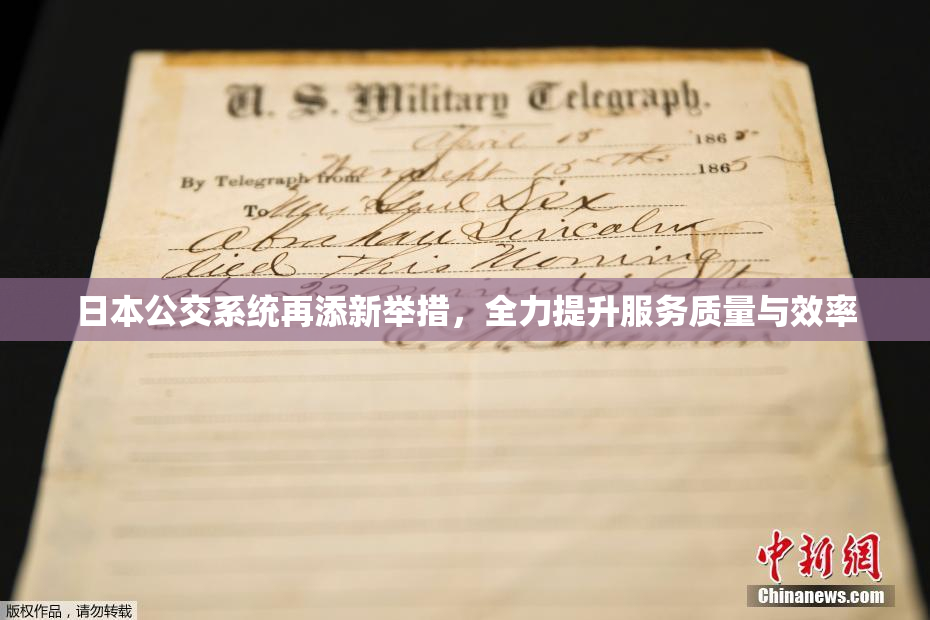 U. S. Military Telegraph.
April 15 1865
By Telegraph from War Dept 15th 1865
To Maj Genl Dix
Abraham Lincoln
died This Morning
at 22 minutes after
日本公交系统再添新举措，全力提升服务质量与效率
E. M. Stanton
中新网
Chinanews.com
版权作品，请勿转载